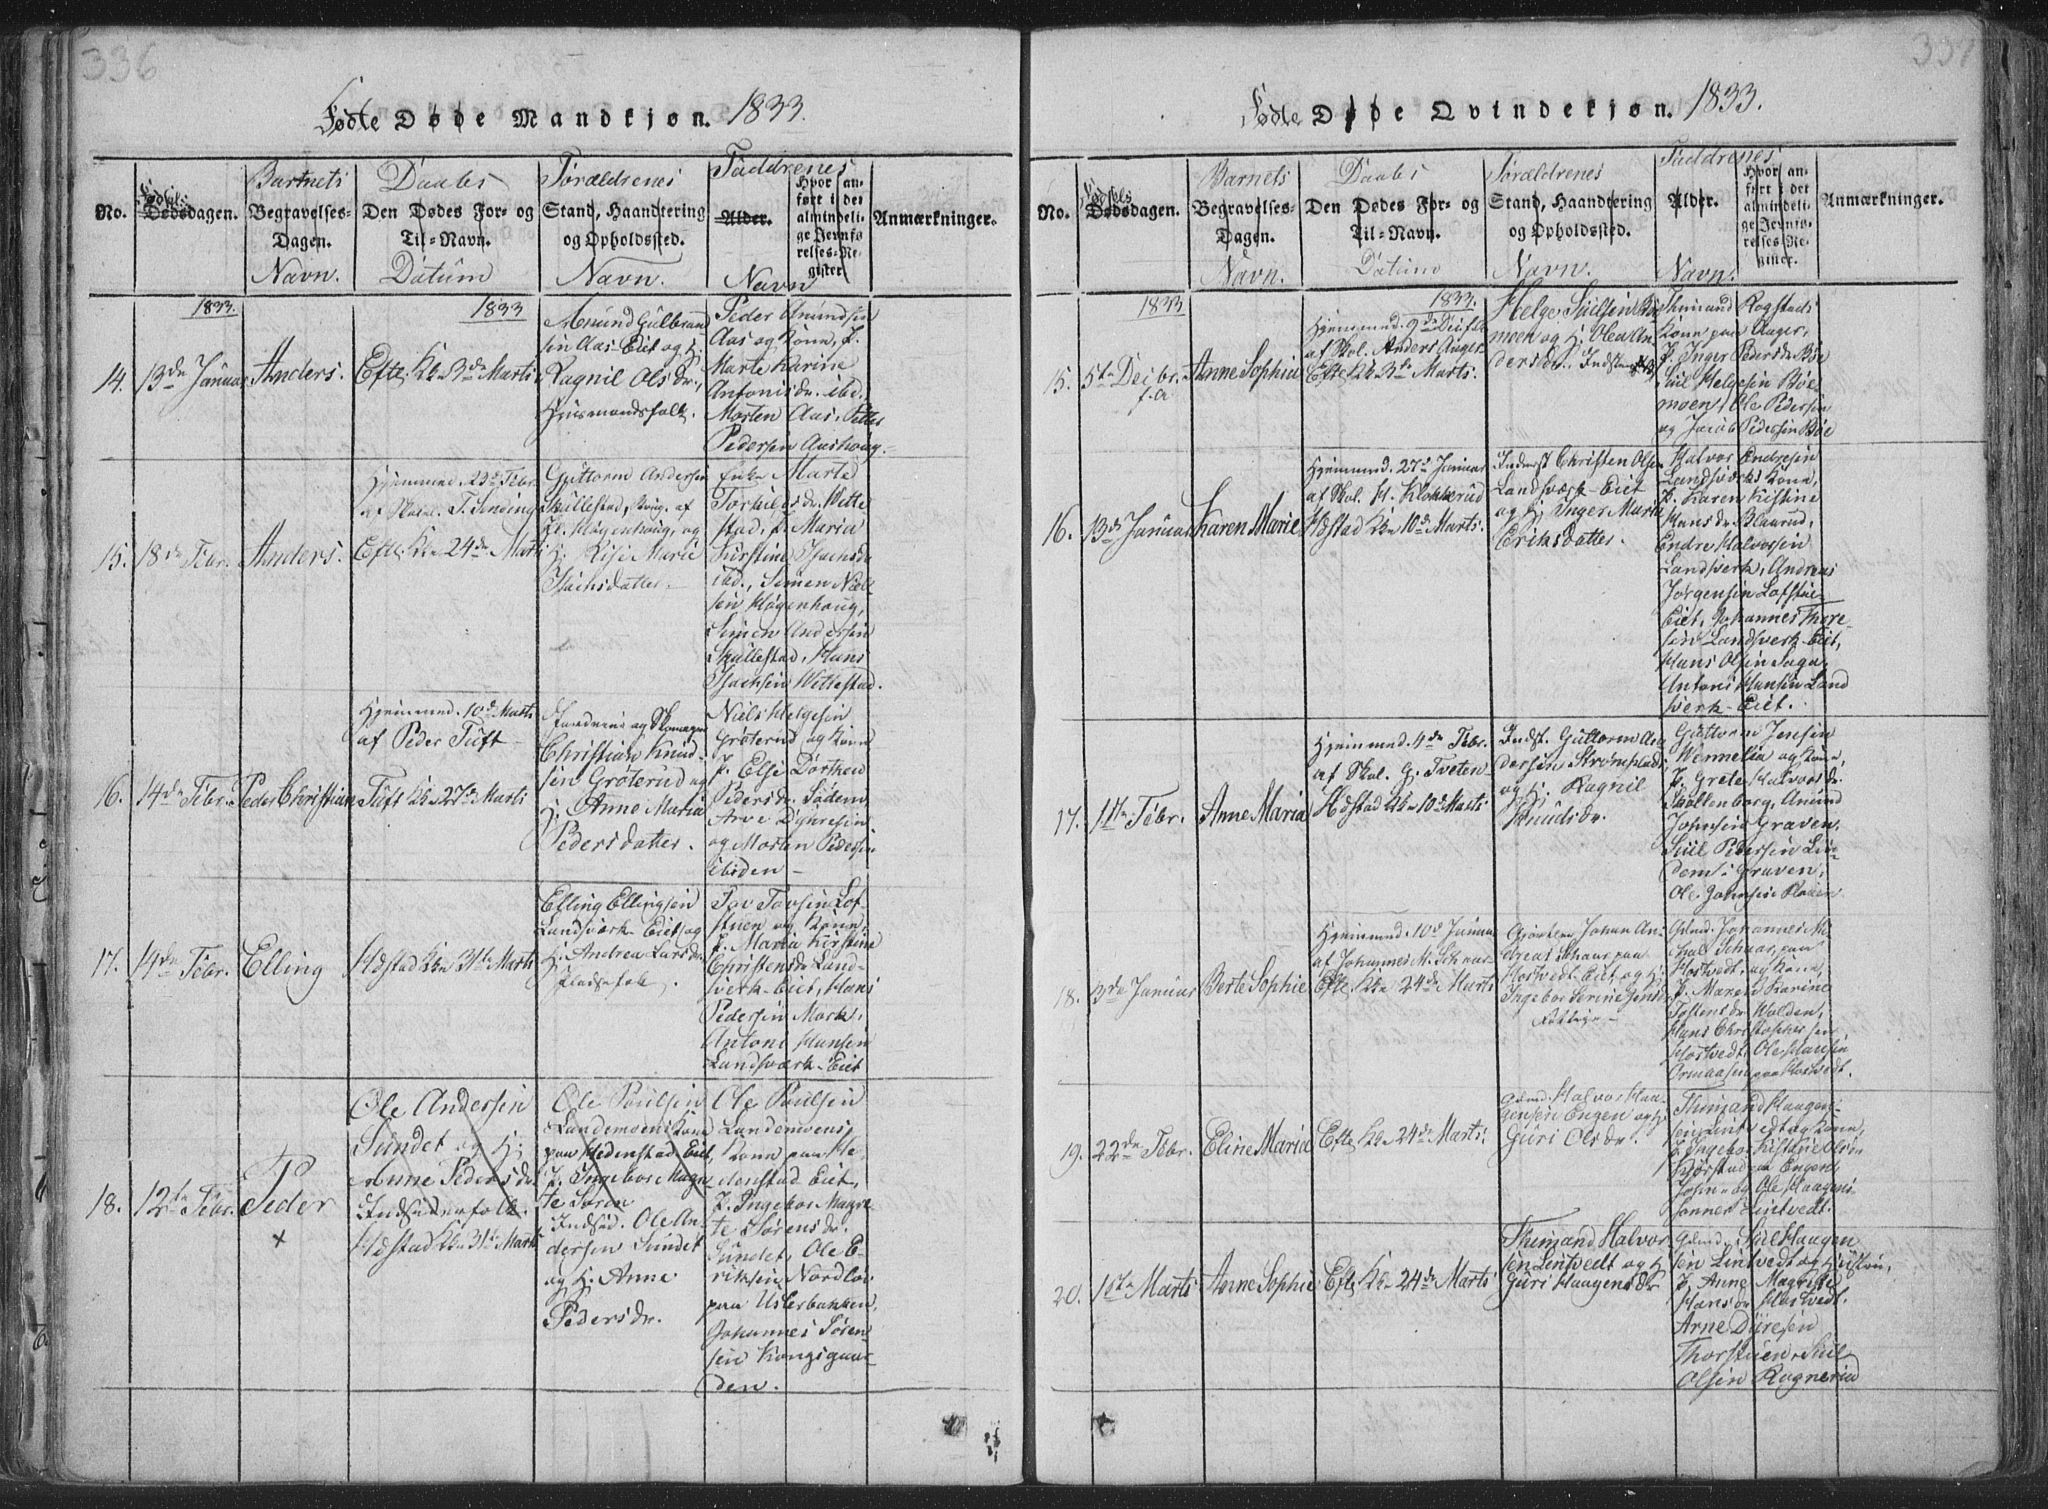 336
Fødte Døde Mandkjøn. 1833.
No.
Fødsels
Dødsdagen.
Barnets
Begravelses-
Dagen.
Navn.
Daabs
Den Dødes For- og
Til-Navn.
Datum
Forældrenes
Stand, Haandtering
og Opholdssted.
Navn.
Faddrenes
Alder.
Navn
Hvor an-
ført i det
almindeli-
ge Jevnfø-
relses-Re-
gister
Anmærkninger.
1833.
1833
14.
13de Januar
Anders.
Efte, Kb. 3de Marts
Amund Gulbrand
sen Aas-Eiet og H.
Ragnil Olsdr.,
Huusmandsfolk.
Peder Amundsen
Aas og Kone, P.
Marte Karine
Antonisdr. ibd.
Morten Aas, Petter
Pedersen Aashoug
15.
18de Febr.
Anders.
Hjemmed. 23de Febr.
af Skoel. T. Sinding
Efte, Kb. 24de Marts
Guttorm Andersen
Skullestad, Brug. af
Pl. Høgenhoug, og
H. Lise Marie
Isachsdatter
Enke Marte
Torkilsdr. Witte
stad, P. Maria
Kirstine Isachsdr
ibd., Simen Niel
sen Høgenhoug,
Simen Andersen
Skullestad, Hans
Isachsen Wittestad.
16.
14de Febr.
Peder Christian
Hjemmed. 10de Marts
af Peder Tuft
Tuft Kb. 27de Marts
og Skomager
Christian Knud
sen Grøterud og
H. Anne Maria
Pedersdatter.
Niels Helgesen
Grøterud og Kone
P. Else Dorthea
Pedersdr. Sødem
Arve Dyhresen
og Morten Pedersen
ibiden
17.
14de Febr.
Elling
Hæstad Kb. 31te Marts
Elling Ellingsen
Landsværk-Eiet og
H. Andrea Larsdr.
Pladsefolk.
Tov Tovsen Lof
stuen og Kone,
P. Maria Kirstine
Christensdr. Land-
sverk-Eiet, Hans
Pedersen Mork,
Antoni Hansen
Landsværk-Eiet
18.
12te Febr.
Peder
+
Ole Andersen
Sundet og H.
Anne Pedersdr.
Indsidderfolk.
Hæstad Kb. 31te Marts
Ole Poulsen
Landemoens Kone
paa Hedenstad Eiet,
P. Ingebor Magre
te Søren
Indsid. Ole An-
dersen Sundet
og H. Anne
Pedersdr.
Ole Poulsen
Landemoens
Kone paa He-
denstad Eiet,
P. Ingebor Magre-
te Sørensdr.
Sundet, Ole E-
riksen Nordløs
paa Uslerbakken,
Johannes Søren-
sen Kongsgaar-
den.
337
Fødte Døde Qvindekjøn. 1833.
No.
Fødsels
Dødsdagen.
Barnets
Begravelses-
Dagen.
Navn.
Daabs
Den Dødes For- og
Til-Navn.
Datum
Forældrenes
Stand, Haandtering
og Opholdssted.
Navn.
Faddrenes
Alder.
Navn.
Hvor an-
ført i det
almindeli-
ge Jevnfø-
relses-Re-
gister.
Anmærkninger.
1833
1833.
15.
5te Decbr.
f. A
Anne Sophie
Hjemmed. 9de Decbr.
af Skol. Anders Auger
Efte Kb. 3de Marts.
Helge Sulsen Bøe
moen og H. Olea An
dersdr. Indst.
Thimand Rogstads
Kone paa Auger,
P. Inger Pedersdr. Bøe
Sul Helgesen Bøe
moen, Ole Pedersen
og Jacob Pedersen Bøe
16.
13de Januar
Karen Marie
Hjemmed. 27de Januar
af Skol. H. Klokkerud
Hæstad Kb. 10de Marts.
Inderst Christen Olsen
Landsværk-Eiet
og H. Inger Maria
Eriksdatter.
Halvor Andresen
Landsværks Kone,
P. Karen Kistine
Hansdr. Blaarud,
Endre Halvorsen
Landsverk, Andreas
Jørgensen Lofstue-
Eiet, Johannes Thore-
sen Landsverk-Eiet,
Hans Olsen Saga,
Antoni Hansen Land
sverk-Eiet.
17.
11te Febr.
Anne Maria
Hjemmed. 4de Febr.
af Skol. G. Tveten
Hæstad Kb. 10de Marts
Indst. Guttorm An
dersen Strømstad
og H. Ragnil
Knudsdr.
Guttorm Jensen
Wermelia og Kone,
P. Grete Halvorsdr.
Skollenborg, Amund
Johnsen Graven,
Sul Pedersen Lin-
dem-Graven,
Ole Johnsen
18.
3de Januar
Berte Sophie
Hjemmed. 10de Januar
af Johannes M. Schaar
Efte Kb. 24de Marts
Johan An-
dreas Schaar paa
Hostvedt-Eiet og H.
Ingebor Serine Jens
Fattige
Gdmd. Johannes Mi-
chal Schaar paa
Hostvedt, og Kone,
P. Maren Karine
Tostensdr. Wolden,
Hans Christophersen
Hostvedt, Ole Hansen
Ormaasen paa Hostvedt.
19.
22de Febr.
Eline Maria
Efte Kb. 24de Marts.
Gdmd. Halvor Haa-
gensen Engen og H.
Guri Olsdr.
Thimand Haagen-
sen Lintvedt og Kone,
P. Ingebor Kistine Olsdr
paa Engen,
John- og Ole Haagens-
sønner Lintvedt.
20.
1ste Marts
Anne Sophie
Efte Kb. 24de Marts
Thimand Halvor
sen Lintvedt og H.
Guri Haagensdr
Gdmd. Sul Haagen
sen Lintvedt og Hustru,
P. Anne Magrete
Hansdr. Hostvedt,
Arne Duresen
Thorstuen, Sul
Olsen Ragnerud